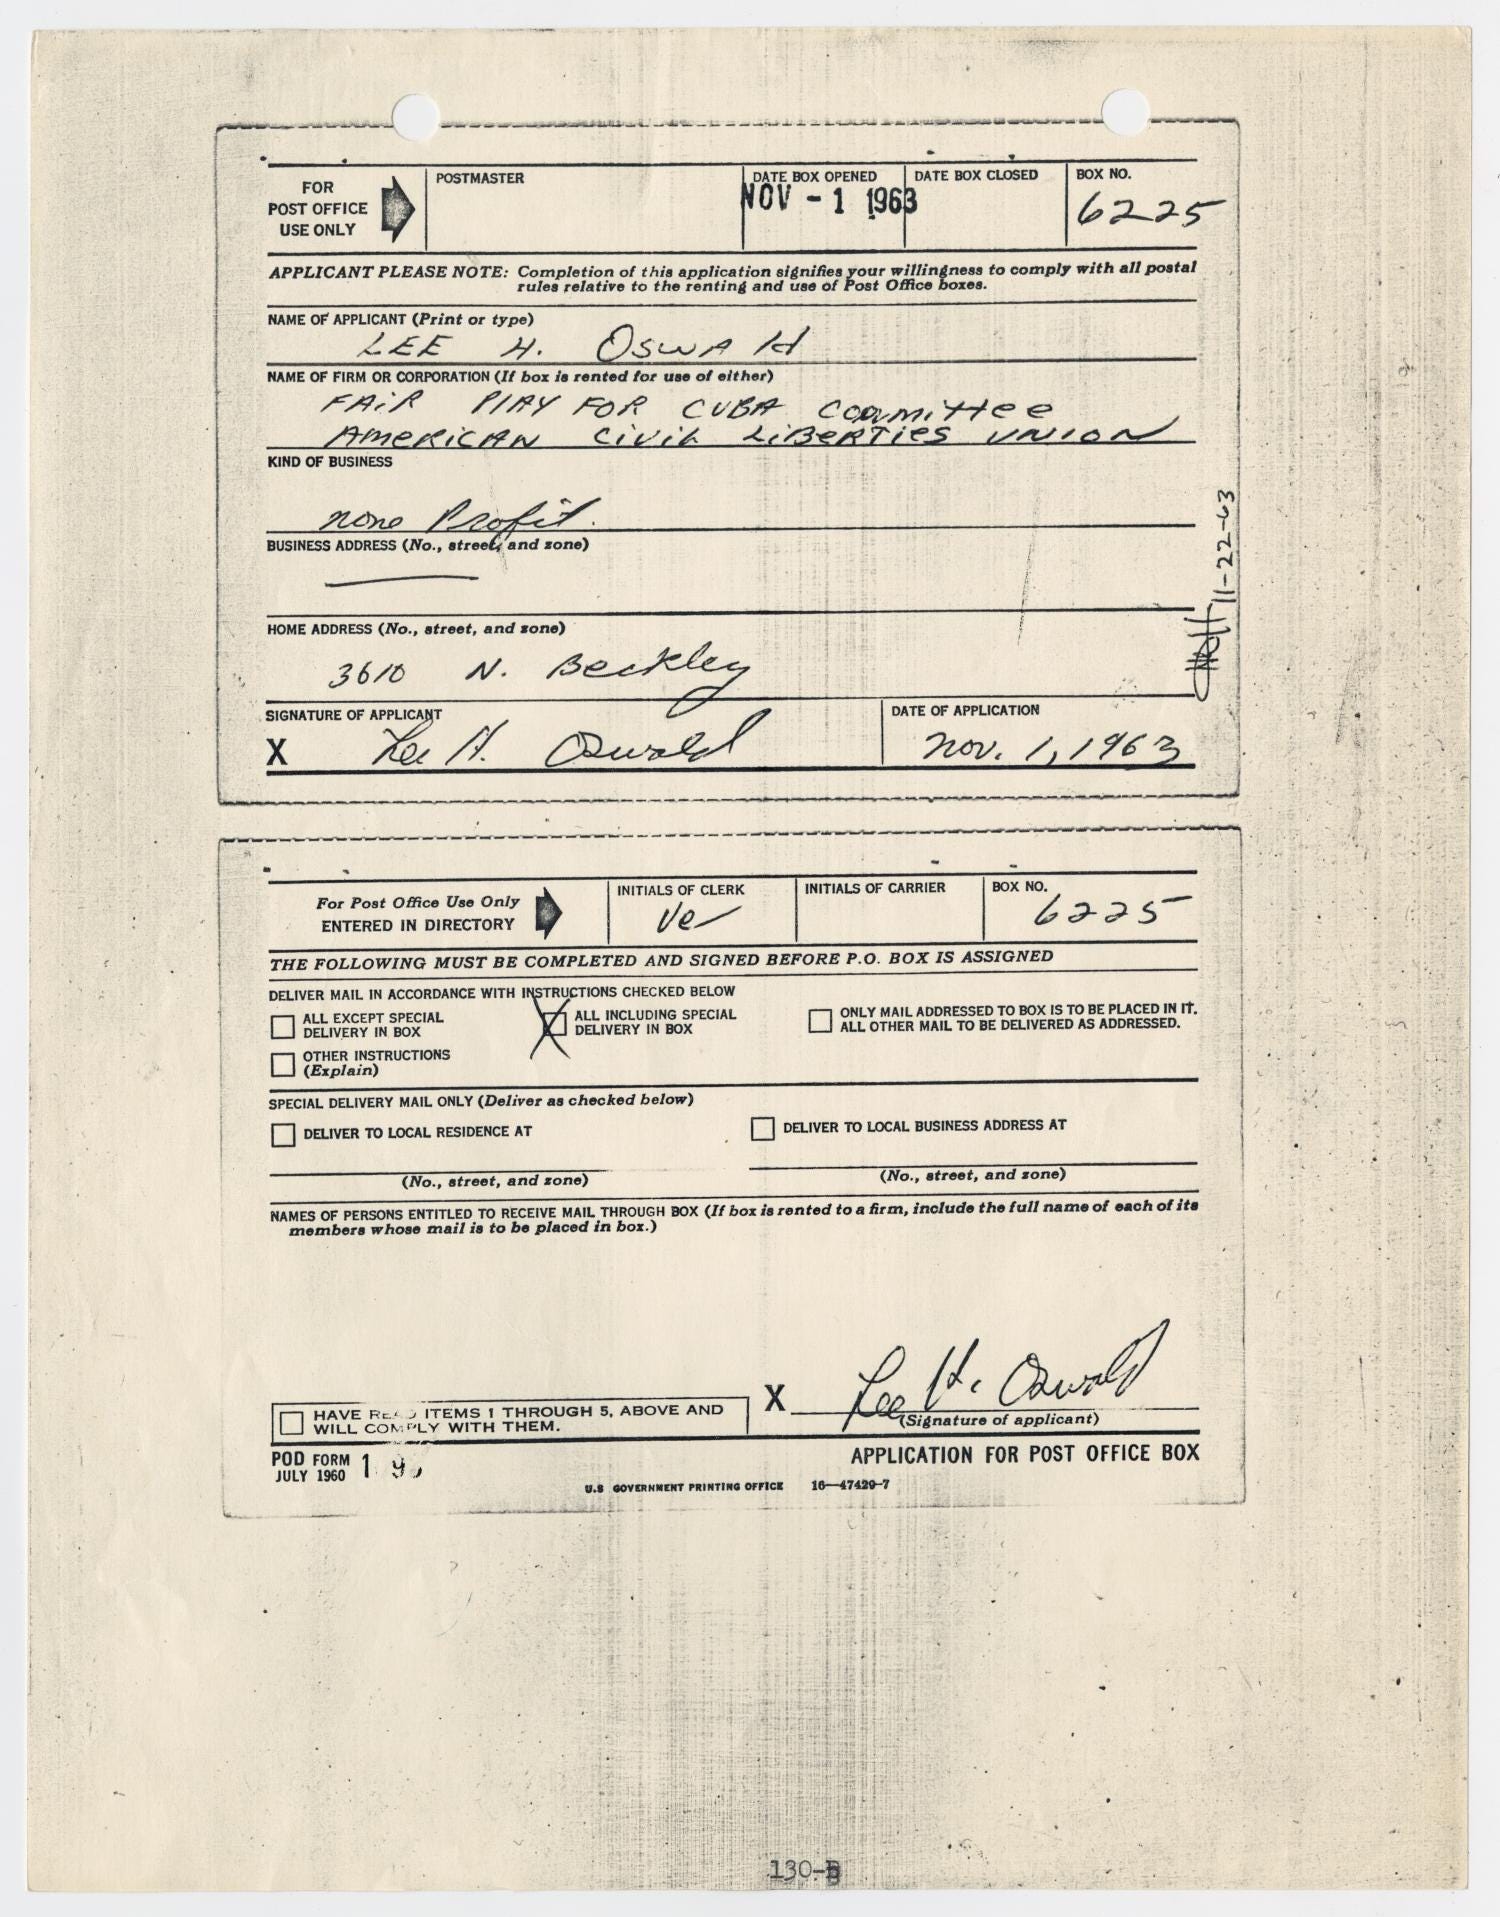 FOR
POST OFFICE
USE ONLY
POSTMASTER
DATE BOX OPENED
NOV - 1 1963
DATE BOX CLOSED
BOX NO.
6225
APPLICANT PLEASE NOTE: Completion of this application signifies your willingness to comply with all postal
rules relative to the renting and use of Post Office boxes.
NAME OF APPLICANT (Print or type)
LEE H. OSWAld
NAME OF FIRM OR CORPORATION (If box is rented for use of either)
FAiR PlAY FOR CUBA Committee
AmeRICAN Civil LiBeRTieS UNION
KIND OF BUSINESS
none Profit.
BUSINESS ADDRESS (No., street, and zone)
HOME ADDRESS (No., street, and zone)
3610 N. Beckley
SIGNATURE OF APPLICANT
X Lee H. Oswald
DATE OF APPLICATION
Nov. 1, 1963
11-22-63
For Post Office Use Only
ENTERED IN DIRECTORY
INITIALS OF CLERK
INITIALS OF CARRIER
BOX NO.
6225
THE FOLLOWING MUST BE COMPLETED AND SIGNED BEFORE P.O. BOX IS ASSIGNED
DELIVER MAIL IN ACCORDANCE WITH INSTRUCTIONS CHECKED BELOW
ALL EXCEPT SPECIAL
DELIVERY IN BOX
X ALL INCLUDING SPECIAL
DELIVERY IN BOX
ONLY MAIL ADDRESSED TO BOX IS TO BE PLACED IN IT.
ALL OTHER MAIL TO BE DELIVERED AS ADDRESSED.
OTHER INSTRUCTIONS
(Explain)
SPECIAL DELIVERY MAIL ONLY (Deliver as checked below)
DELIVER TO LOCAL RESIDENCE AT
DELIVER TO LOCAL BUSINESS ADDRESS AT
(No., street, and zone)
(No., street, and zone)
NAMES OF PERSONS ENTITLED TO RECEIVE MAIL THROUGH BOX (If box is rented to a firm, include the full name of each of its
members whose mail is to be placed in box.)
X Lee H. Oswald
(Signature of applicant)
HAVE READ ITEMS 1 THROUGH 5, ABOVE AND
WILL COMPLY WITH THEM.
POD FORM
JULY 1960
APPLICATION FOR POST OFFICE BOX
U.S GOVERNMENT PRINTING OFFICE 16—47429-7
130-B